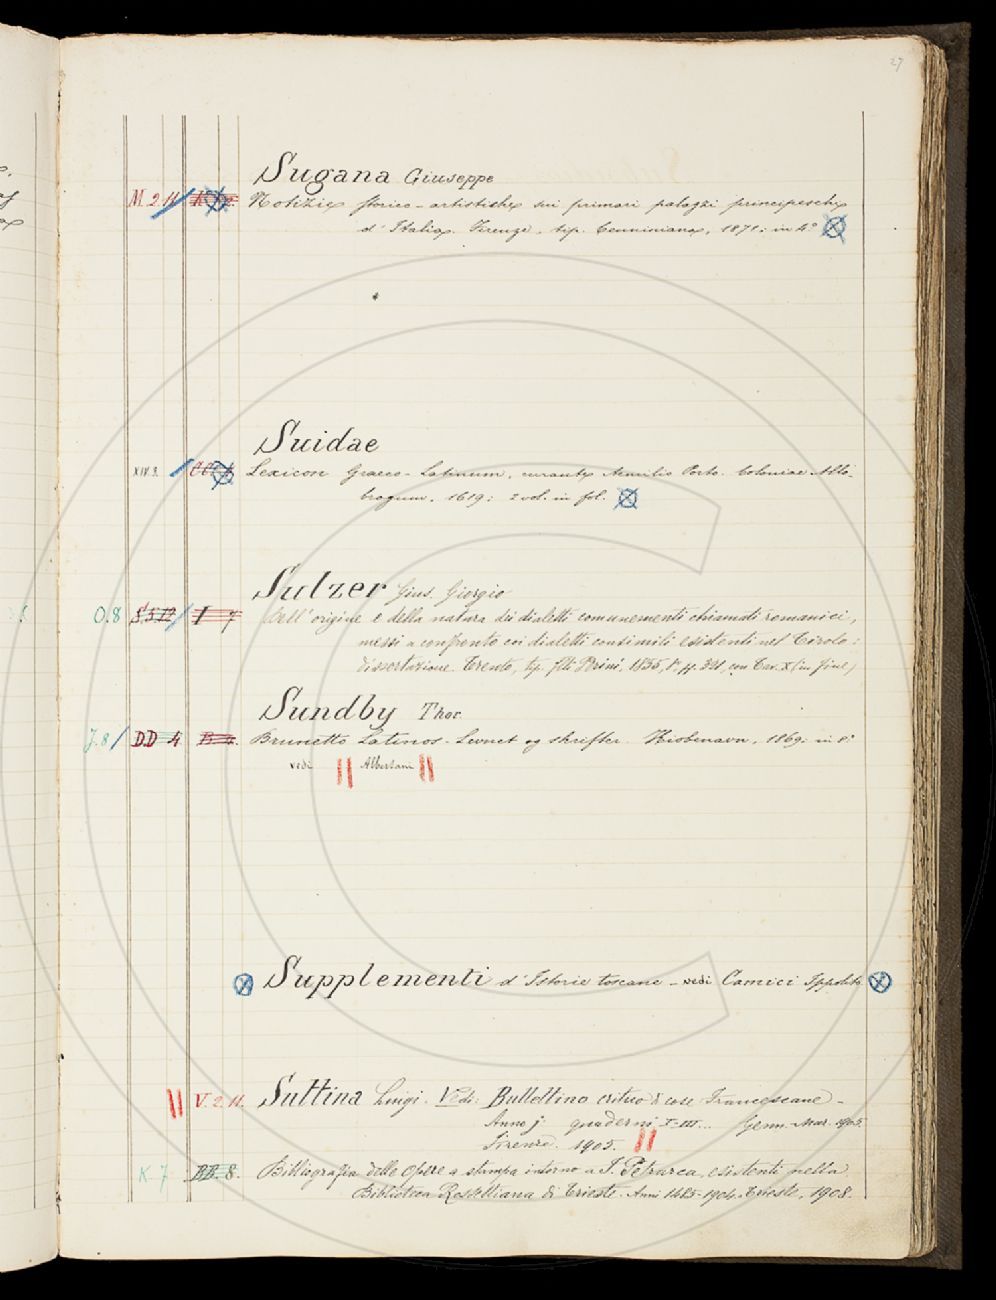 27
Sugana Giuseppe
M. 2. 11 Notizie storico-artistiche sui primari palazzi principeschi
d'Italia. Firenze, tip. Cenniniana, 1871; in 4°
Suidae
XIV. 3. Lexicon Graeco-Latinum, curante Aemilio Porto. Coloniae Allo-
brogum, 1619; 2 vol. in fol.
Sulzer Gius. Giorgio
O.8 S.5.12 I 7 Dell'origine e della natura dei dialetti comunemente chiamati romanici,
messi a confronto coi dialetti consimili esistenti nel Tirolo:
dissertazione. Trento, tip. 1855, con Tav. X (in fine)
Sundby Thor.
J.8 DD 4 Brunetto Latinos Levnet og skrifter. Kiobenavn, 1869; in 8°
vedi Albertani
Supplementi d'Istorie toscane - vedi Camici Ippolito
V. 2. 11. Suttina Luigi. Vedi: Bullettino critico di cose Francescane -
Anno j° quaderni I-III... Genn.-Mar. 1905.
Firenze. 1905.
K 7 BB. 8. Bibliografia delle opere a stampa intorno a F. Petrarca esistenti nella
Biblioteca Rossettiana di Trieste. Anni 1485-1904. Trieste, 1908.